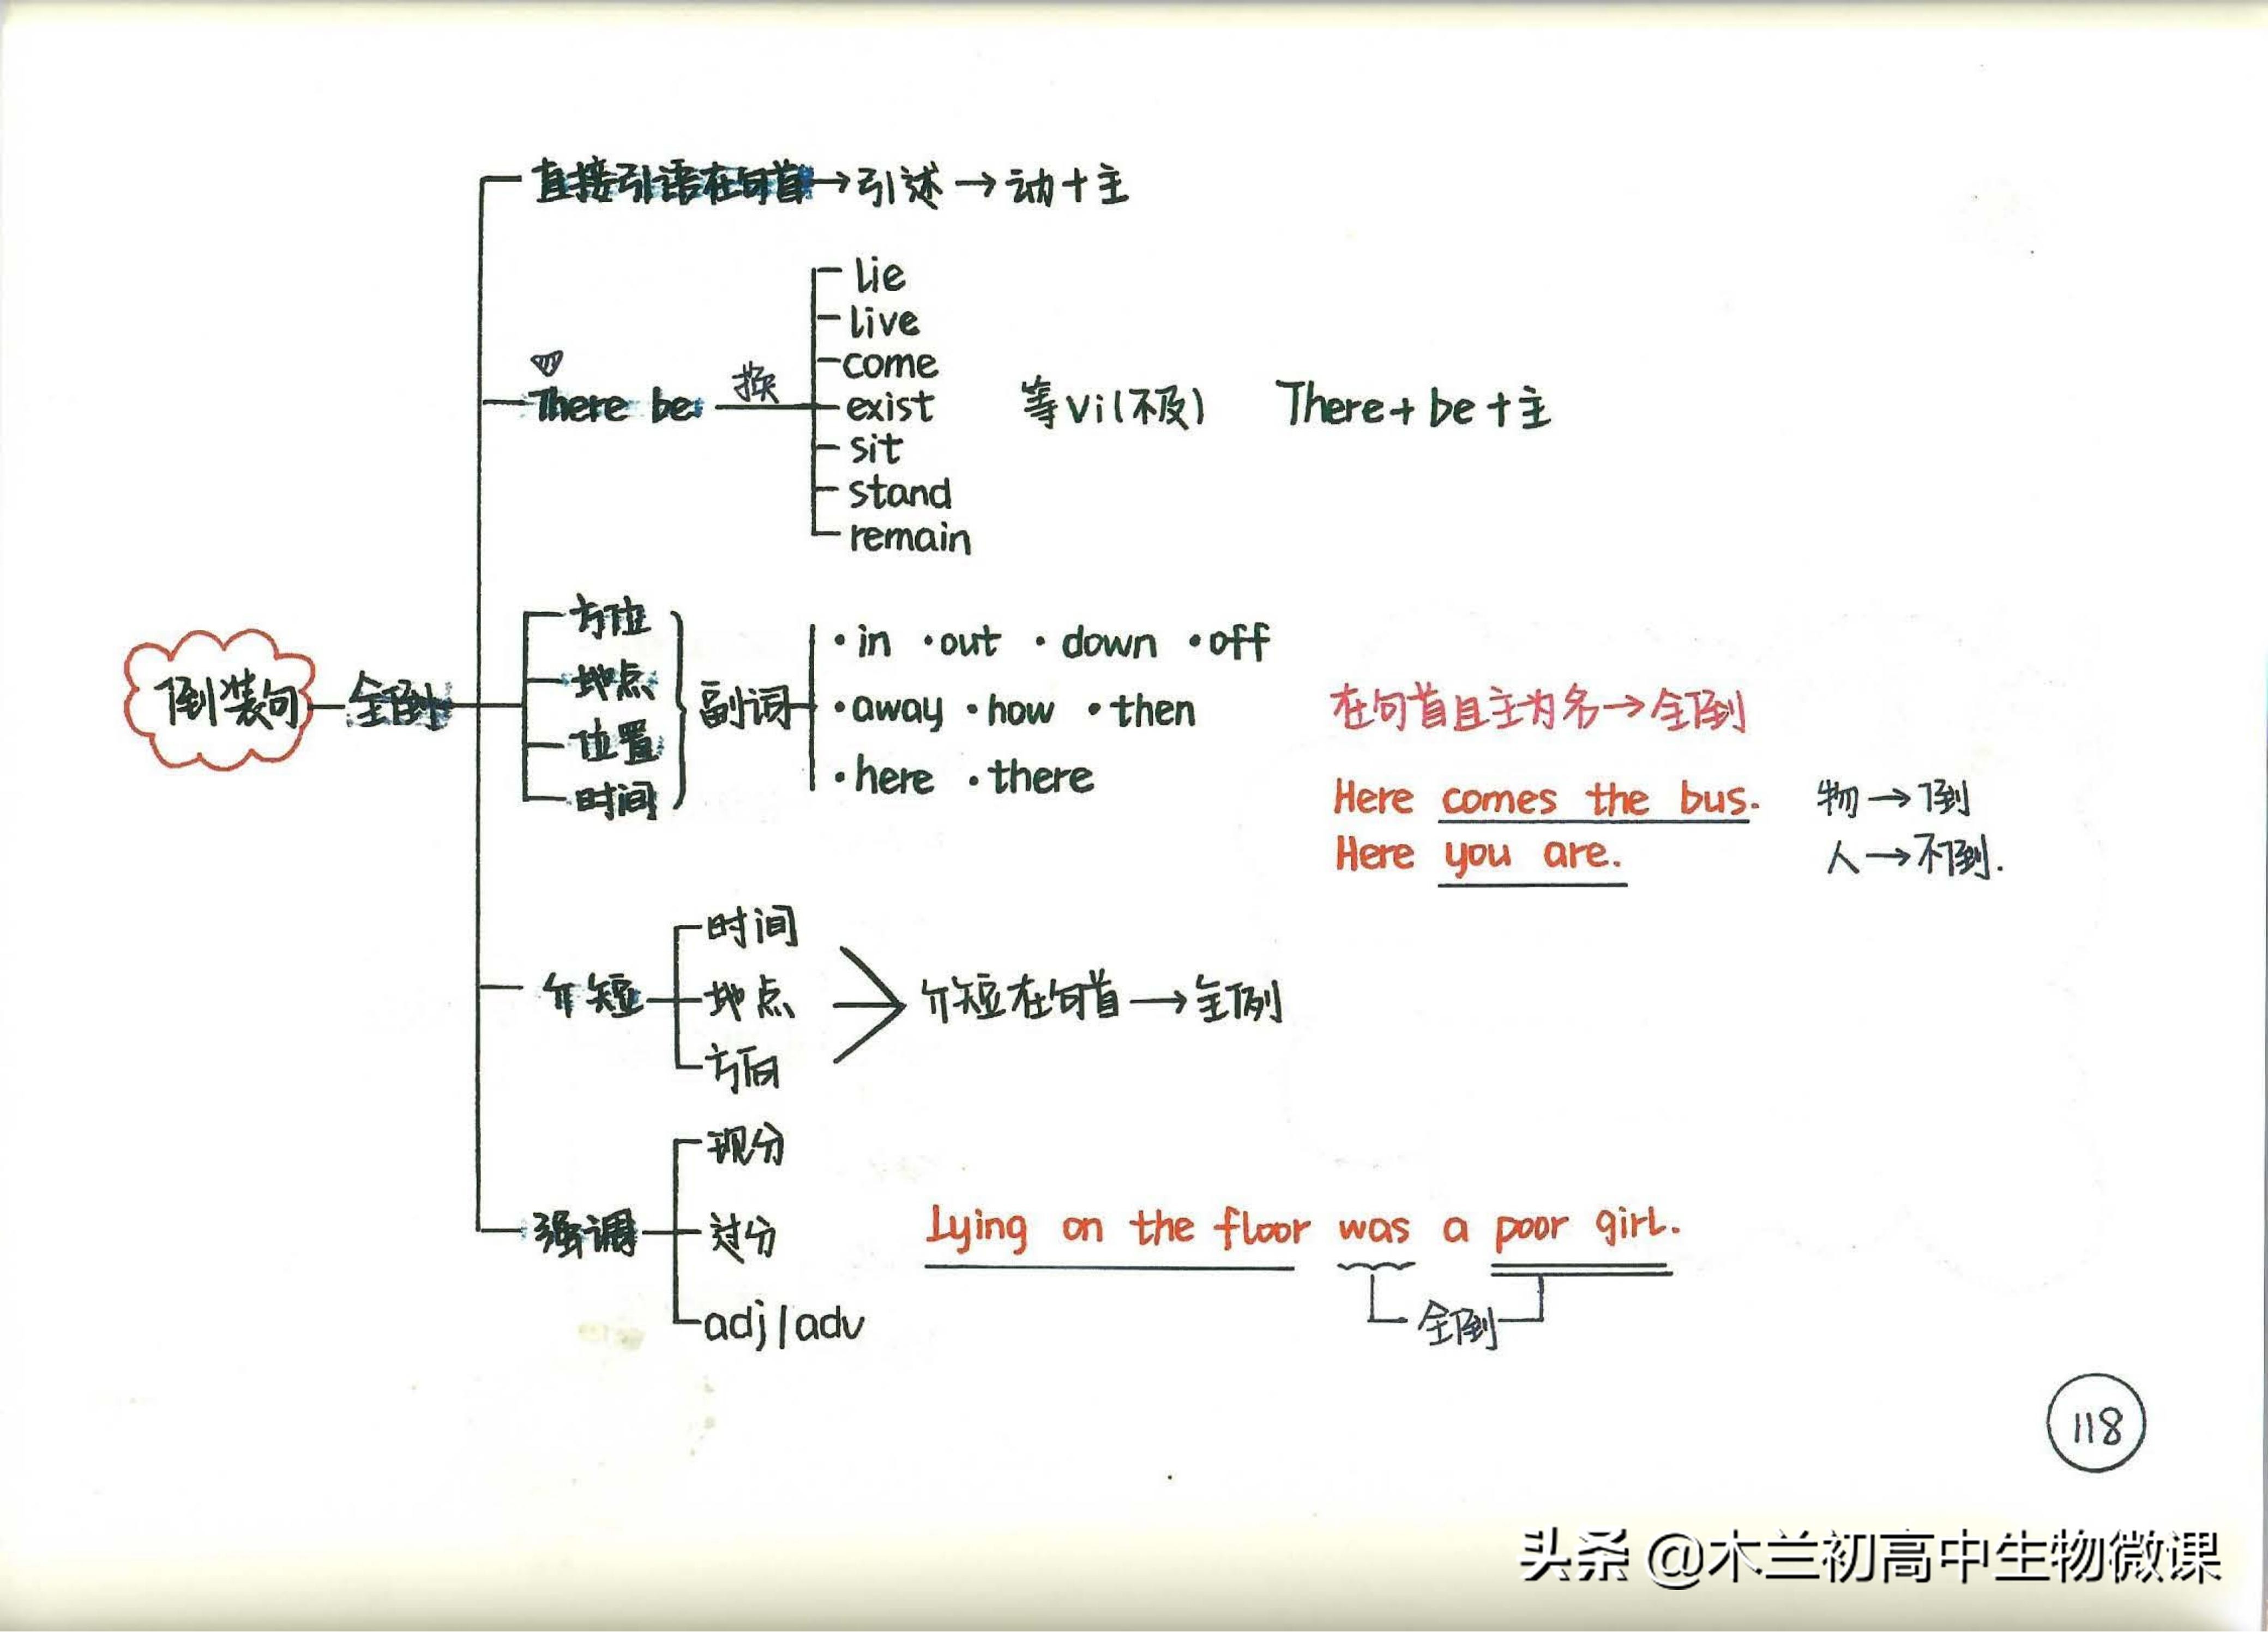 直接引语在句首→引述→动+主
lie
live
come
There be 换 exist 等vi(不及) There+be+主
sit
stand
remain
倒装句
全倒
方位
地点
位置
时间
副词
·in ·out ·down ·off
·away ·how ·then
·here ·there
在句首且主为名→全倒
Here comes the bus. 物→倒
Here you are. 人→不倒.
介短
时间
地点
方向
介短在句首→全倒
强调
现分
过分
adj/adv
Lying on the floor was a poor girl.
全倒
118
头条 @木兰初高中生物微课